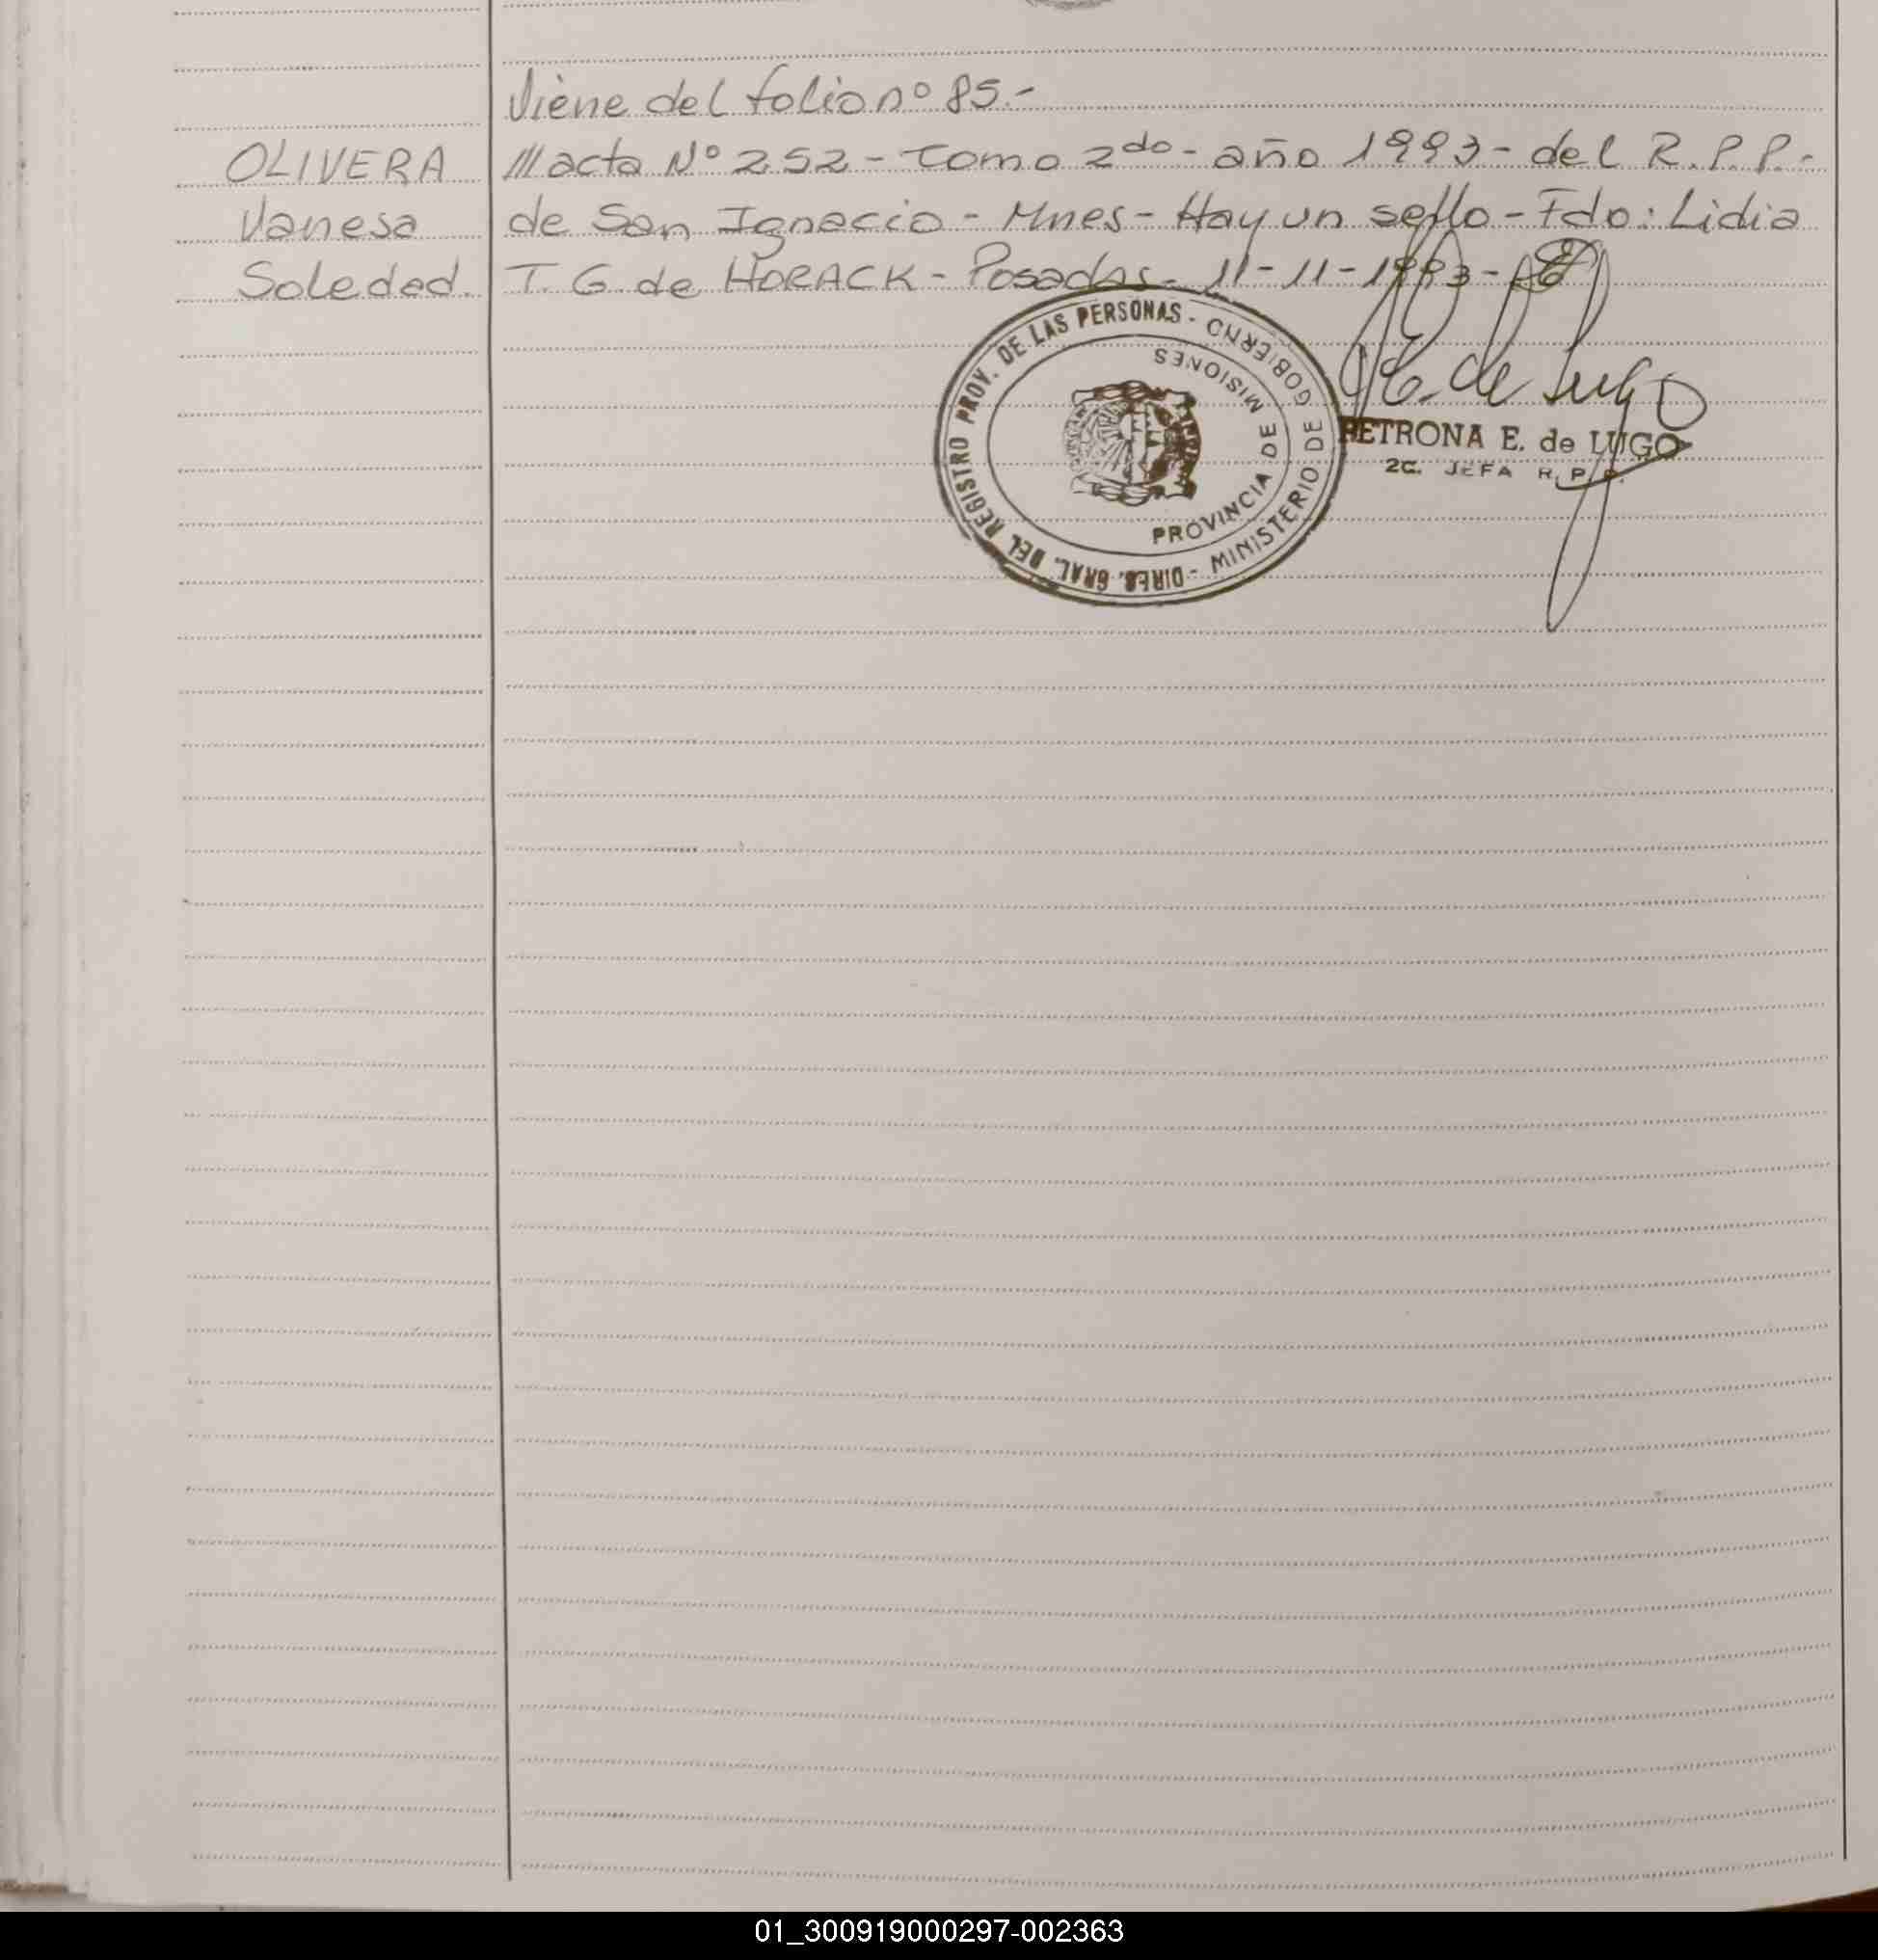 Viene del folio nº 85.-
OLIVERA
Vanesa
Soledad.
/// acta Nº 252 - Tomo 2do - año 1993 - del R.P.P.-
de San Ignacio - Mnes - Hay un sello - Fdo: Lidia
T. G. de HORACK - Posadas - 11-11-1993 -
DIREC. GRAL. DEL REGISTRO PROV. DE LAS PERSONAS -
MINISTERIO DE GOBIERNO
PROVINCIA DE MISIONES
E. de Lugo
PETRONA E. de LUGO
2C. JEFA R. P. P.
01_300919000297-002363